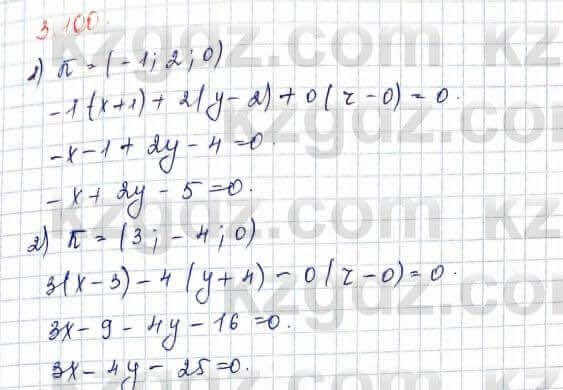 3.100.
1) n = (-1; 2; 0)
-1(x+1) + 2(y-2) + 0(z-0) = 0.
-x-1+2y-4=0.
-x+2y-5=0.
2) n = (3; -4; 0)
3(x-3)-4(y+4)-0(z-0)=0.
3x-9-4y-16=0.
3x-4y-25=0.